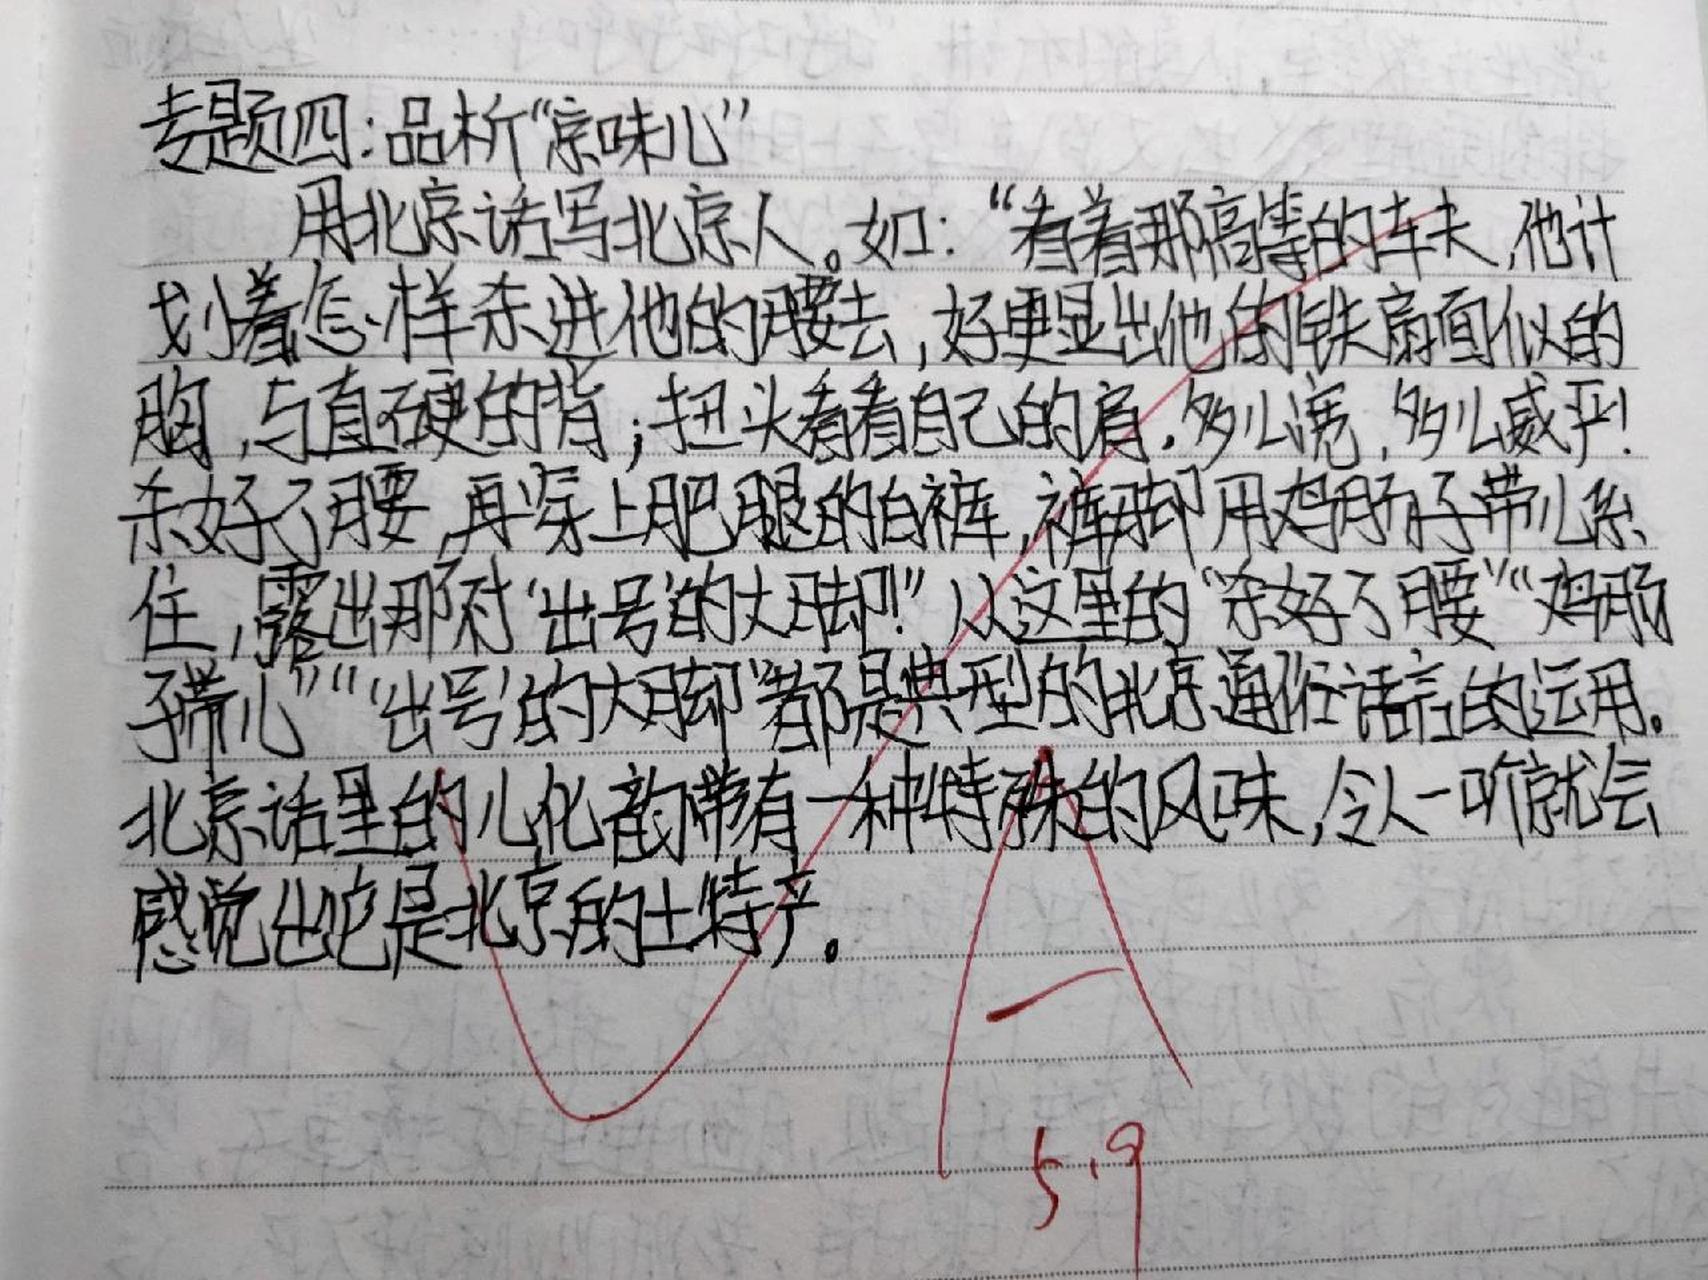 专题四：品析“京味儿”
用北京话写北京人。如：“看着那高等的车夫，他计
划着怎样杀进他的腰去，好更显出他的铁扇面似的
胸，与直硬的背；扭头看看自己的肩，多么宽，多么威严！
杀好了腰，再穿上肥腿的白裤，裤脚用鸡肠子带儿系
住，露出那对‘出号’的大脚！”从这里的“杀好了腰”“鸡肠
子带儿”“‘出号’的大脚”都是典型的北京通俗语言的运用。
北京话里的儿化韵带有一种特殊的风味，令人一听就会
感觉出它是北京的土特产。
A
5.9